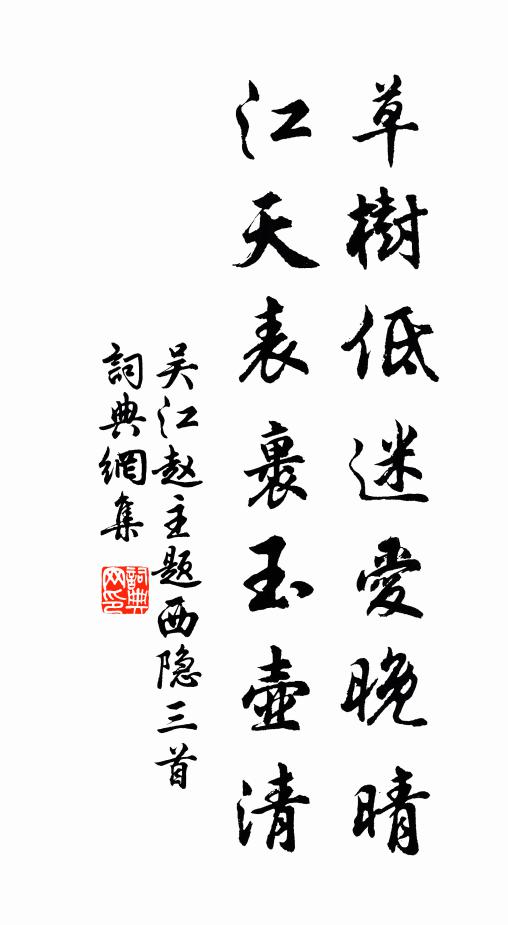 草樹低迷愛晚晴
江天表裏玉壺清
吴江赵主题西隐三首
詞典網集
詞典網印